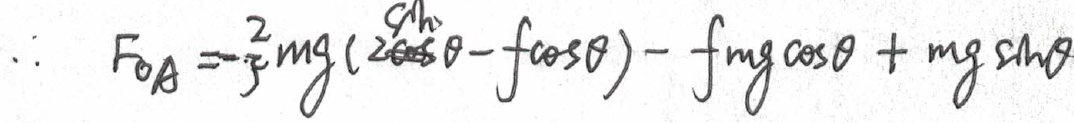 ∴ F_{OA} = -\frac{2}{5}mg(2sinθ - fcosθ) - fmg cosθ + mg sinθ